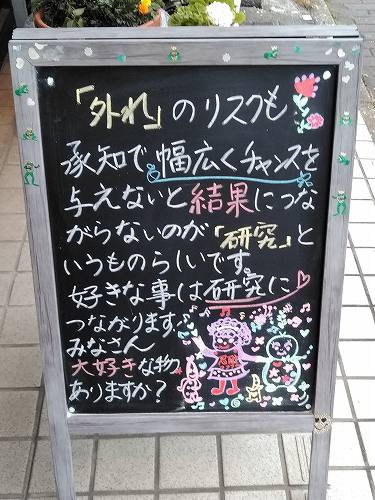 「外れ」のリスクも
承知で幅広くチャンスを
与えないと結果につな
がらないのが「研究」と
いうものらしいです。
好きな事は研究に
つながります♪
みなさん
大好きな物
ありますか？